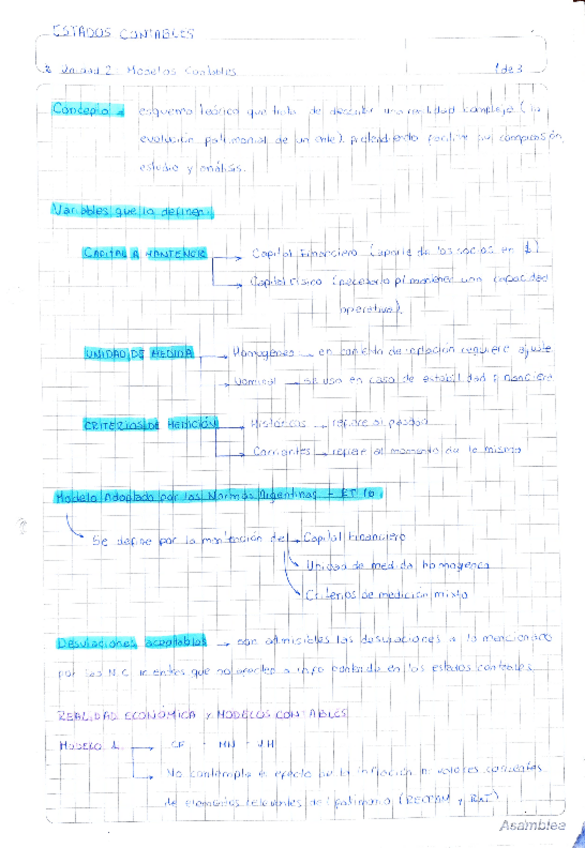 ESTADOS CONTABLES
Unidad 2: Modelos Contables 1 de 3
Concepto → esquema teórico que trata de describir una realidad compleja (la
evolución patrimonial de un ente), pretendiendo facilitar su comprensión,
estudio y análisis.
Variables que lo definen:
CAPITAL A MANTENER → Capital Financiero (aporte de los socios en $)
→ Capital Físico (necesario p/ mantener una capacidad
operativa).
UNIDAD DE MEDIDA → Homogénea → en contexto de inflación requiere ajuste
→ Nominal → se usa en caso de estabilidad
CRITERIOS DE MEDICIÓN → Históricos → refiere al pasado
→ Corrientes → refiere al momento de
Modelo Adoptado por las Normas Argentinas - RT 16:
Se define por la mantención de → Capital Financiero
→ Unidad de medida homogénea
→ Criterios de medición mixto
Desviaciones aceptables → son admisibles las desviaciones a lo mencionado
por las N.C. que no afecten a info contenida en los estados contables.
REALIDAD ECONÓMICA y MODELOS CONTABLES
MODELO 1 → CF - MN - VH
→ No contempla el efecto de la inflación ni valores corrientes
de elementos relevantes del patrimonio (RECPAM y RxT)
Asamblea